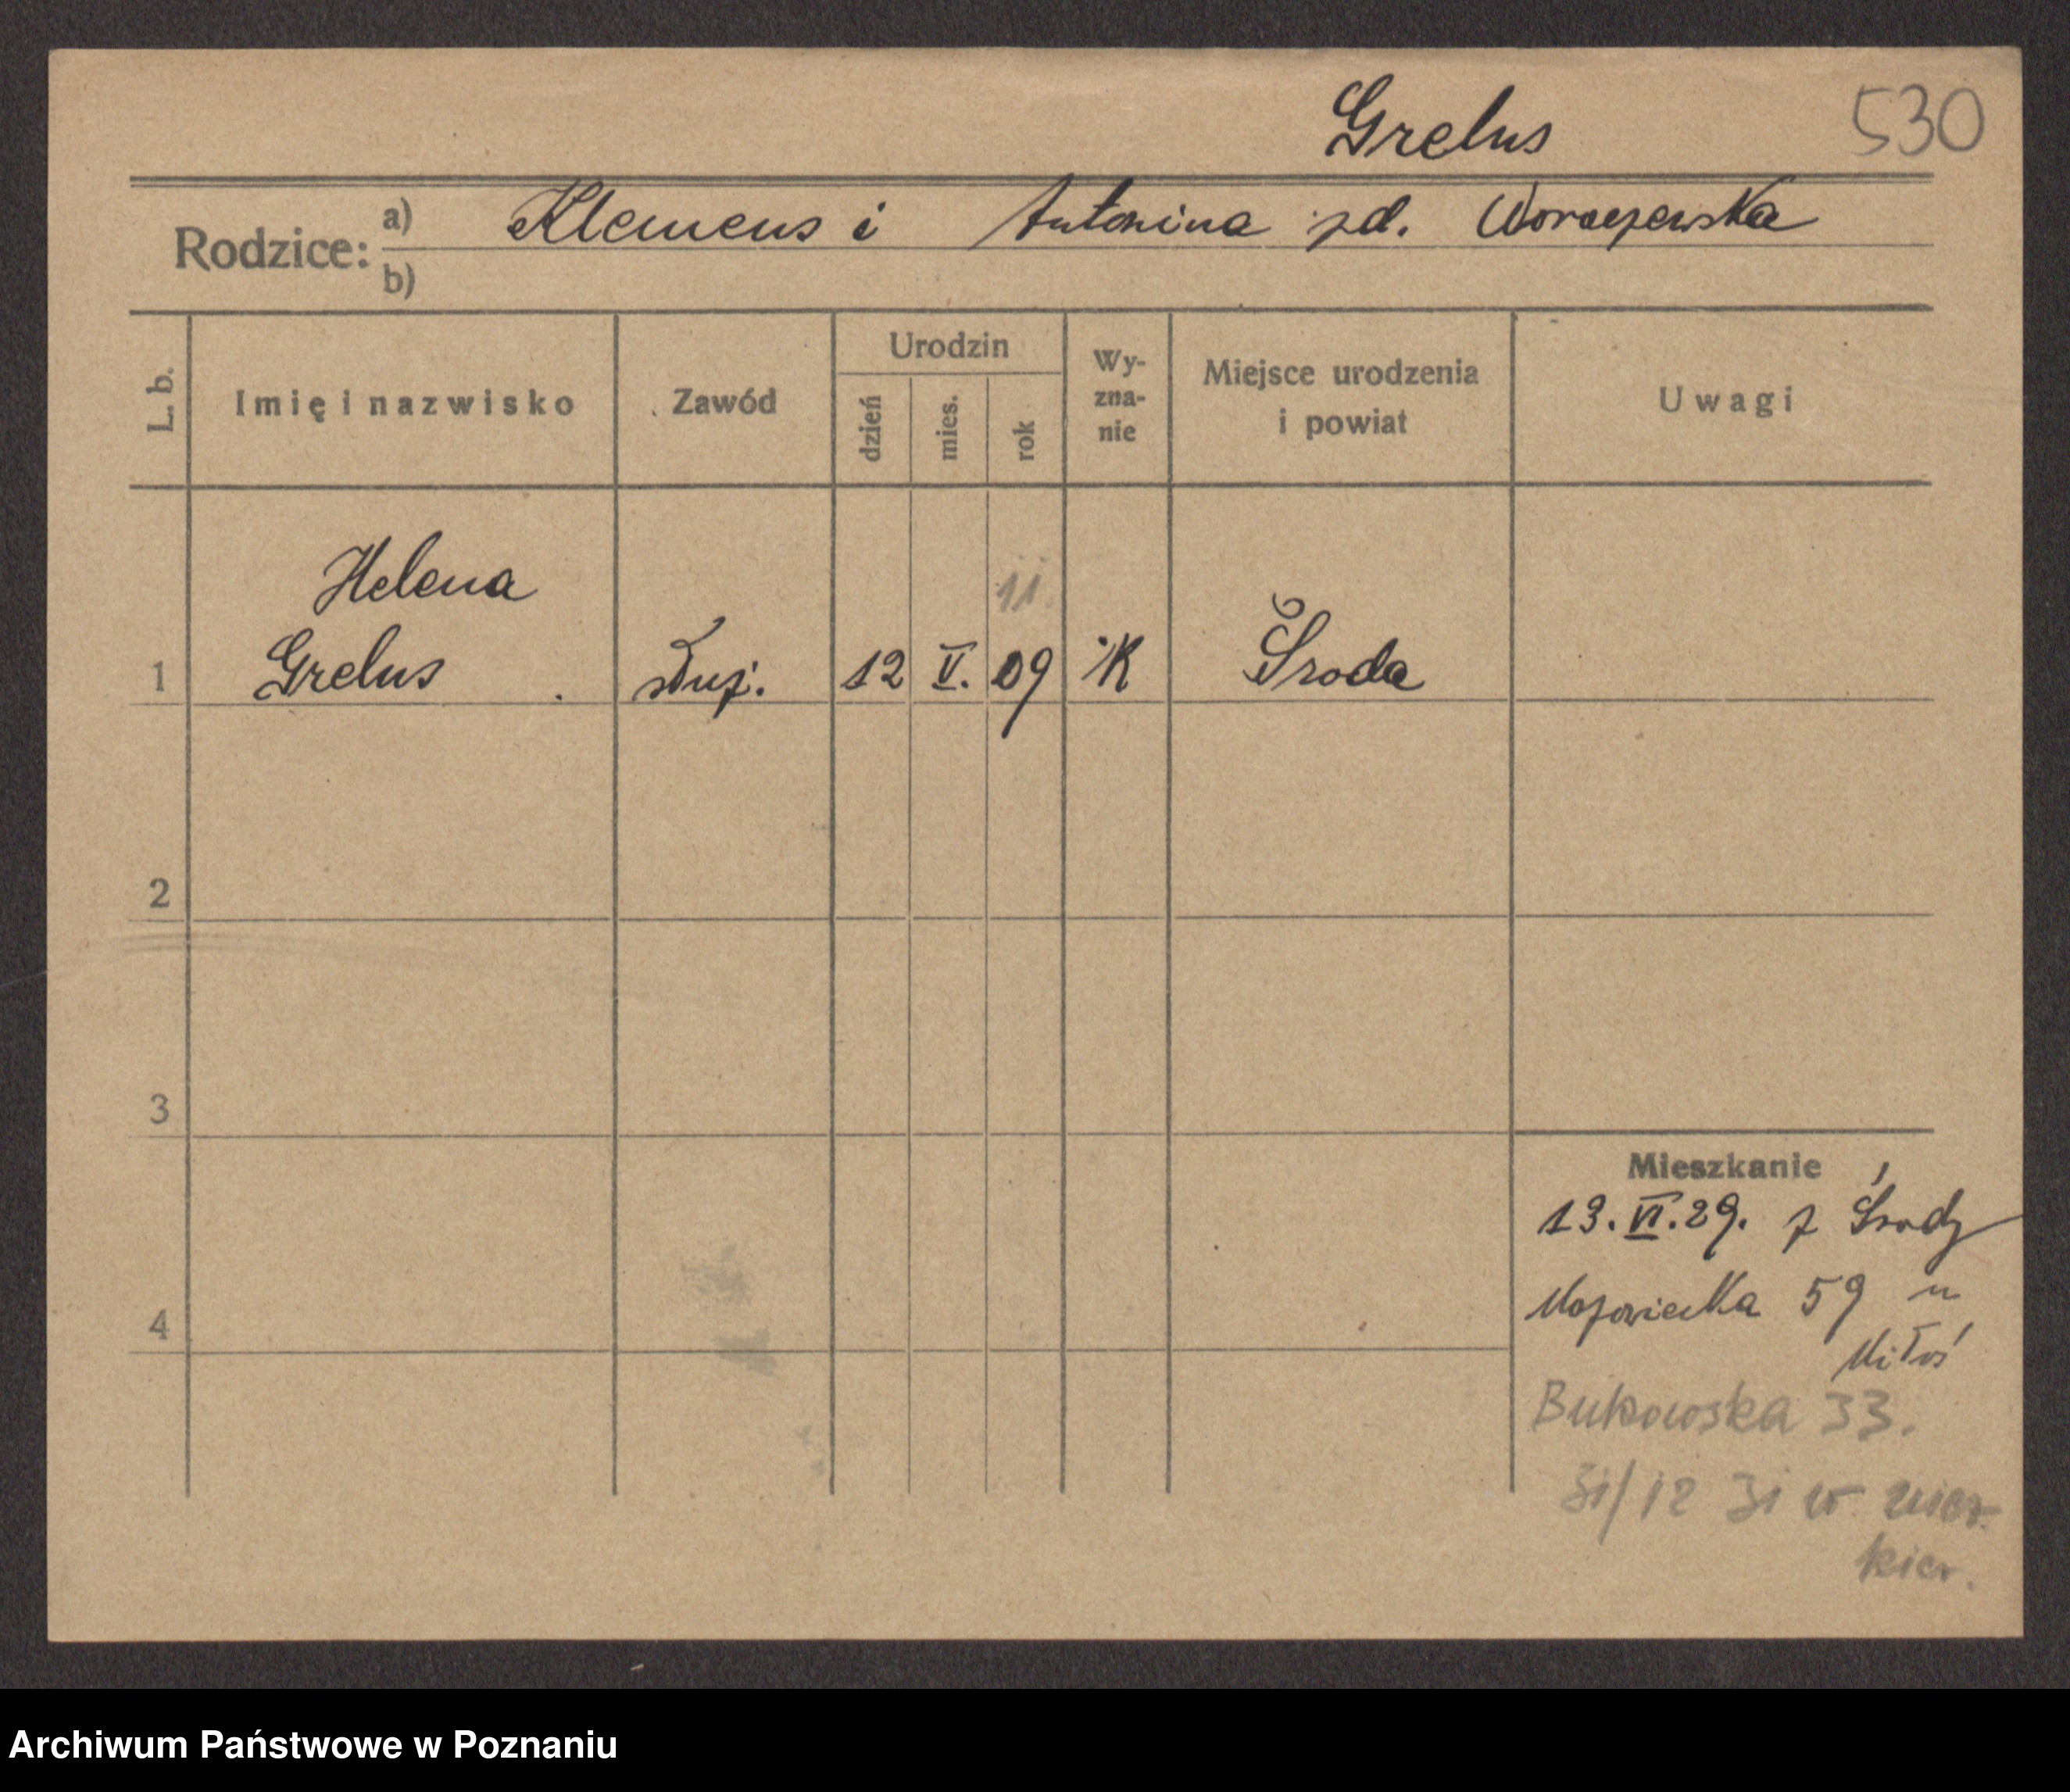 Grelus 530
Rodzice: a) Klemens i Antonina zd.
b)
L. b. Imię i nazwisko Zawód Urodzin dzień mies. rok Wy-zna-nie Miejsce urodzenia i powiat Uwagi
Helena 11
1 Grelus służ. 12 V. 09 K Środa
2
3
4
Mieszkanie
13. VI. 29. z Środy
Mazowiecka 59 u
Miłoś
Bukowska 33.
31/12 31 w